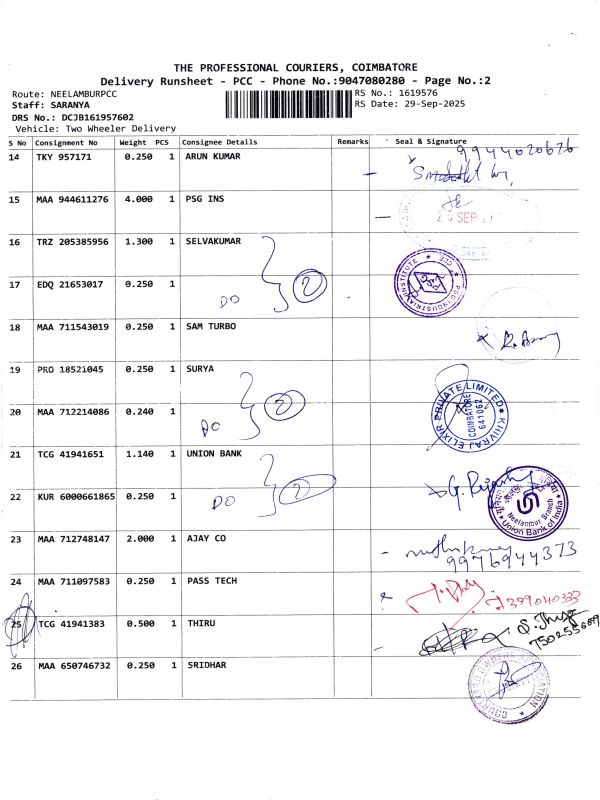 THE PROFESSIONAL COURIERS, COIMBATORE
Delivery Runsheet - PCC - Phone No.:9047080280 - Page No.:2
Route: NEELAMBURPCC
RS No.: 1619576
Staff: SARANYA
RS Date: 29-Sep-2025
DRS No.: DCJB161957602
Vehicle: Two Wheeler Delivery
S No Consignment No Weight PCS Consignee Details Remarks Seal & Signature
9944020676
14 TKY 957171 0.250 1 ARUN KUMAR
15 MAA 944611276 4.000 1 PSG INS
SEP
16 TRZ 205385956 1.300 1 SELVAKUMAR
17 EDQ 21653017 0.250 1
DO 2
PSG INDUSTRIAL INSTITUTE
18 MAA 711543019 0.250 1 SAM TURBO
19 PRO 18521045 0.250 1 SURYA
20 MAA 712214086 0.240 1
DO 2
KHIVRAJ ELIXIR PRIVATE LIMITED
COIMBATORE
641062
21 TCG 41941651 1.140 1 UNION BANK
22 KUR 6000661865 0.250 1
DO 2
Neelambur Branch
Union Bank of India
23 MAA 712748147 2.000 1 AJAY CO
9976944373
24 MAA 711097583 0.250 1 PASS TECH
25 TCG 41941383 0.500 1 THIRU
26 MAA 650746732 0.250 1 SRIDHAR